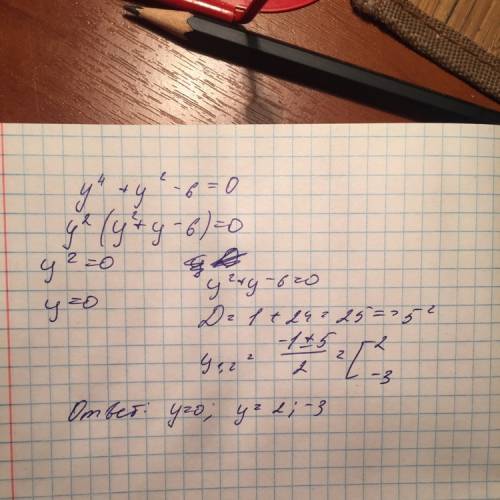 y⁴ + y² - 6 = 0
y² (y² + y - 6) = 0
y² = 0
y = 0
y² + y - 6 = 0
D = 1 + 24 = 25 => 5²
y₁,₂ = (-1 ± 5)/2 = [ 2 -3
Ответ: y=0; y = 2; -3